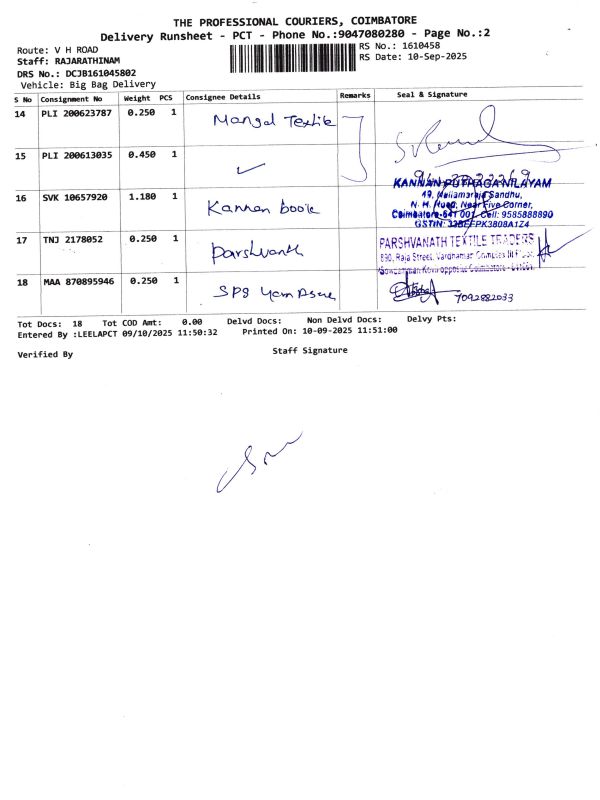 THE PROFESSIONAL COURIERS, COIMBATORE
Delivery Runsheet - PCT - Phone No.:9047080280 - Page No.:2
Route: V H ROAD
RS No.: 1610458
Staff: RAJARATHINAM
RS Date: 10-Sep-2025
DRS No.: DCJB161045802
Vehicle: Big Bag Delivery
S No Consignment No Weight PCS Consignee Details Remarks Seal & Signature
14 PLI 200623787 0.250 1 Mangal Textile
15 PLI 200613035 0.450 1
16 SVK 10657920 1.180 1 Kannan book
KANNAN PUTHAGA NILAYAM
49, Nallamaraja Sandhu,
N. H. Road, Near Five Corner,
Coimbatore-641 001. Cell: 9585888890
GSTIN: 33BEFPK3808A1Z4
17 TNJ 2178052 0.250 1 Parshvanth
PARSHVANATH TEXTILE TRADERS
690, Raja Street, Vardhaman Complex III Floor,
18 MAA 870895946 0.250 1 SPS
7092882033
Tot Docs: 18 Tot COD Amt: 0.00 Delvd Docs: Non Delvd Docs: Delvy Pts:
Entered By :LEELAPCT 09/10/2025 11:50:32 Printed On: 10-09-2025 11:51:00
Verified By Staff Signature